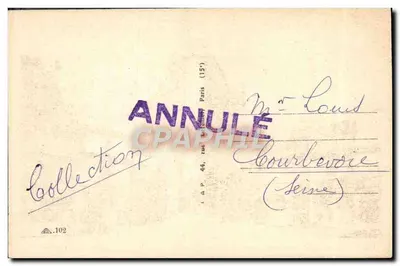 Collection
ANNULÉ
Mr Louis
Courbevoie
(Seine)
44, Paris (15e)
102
CPARAMA